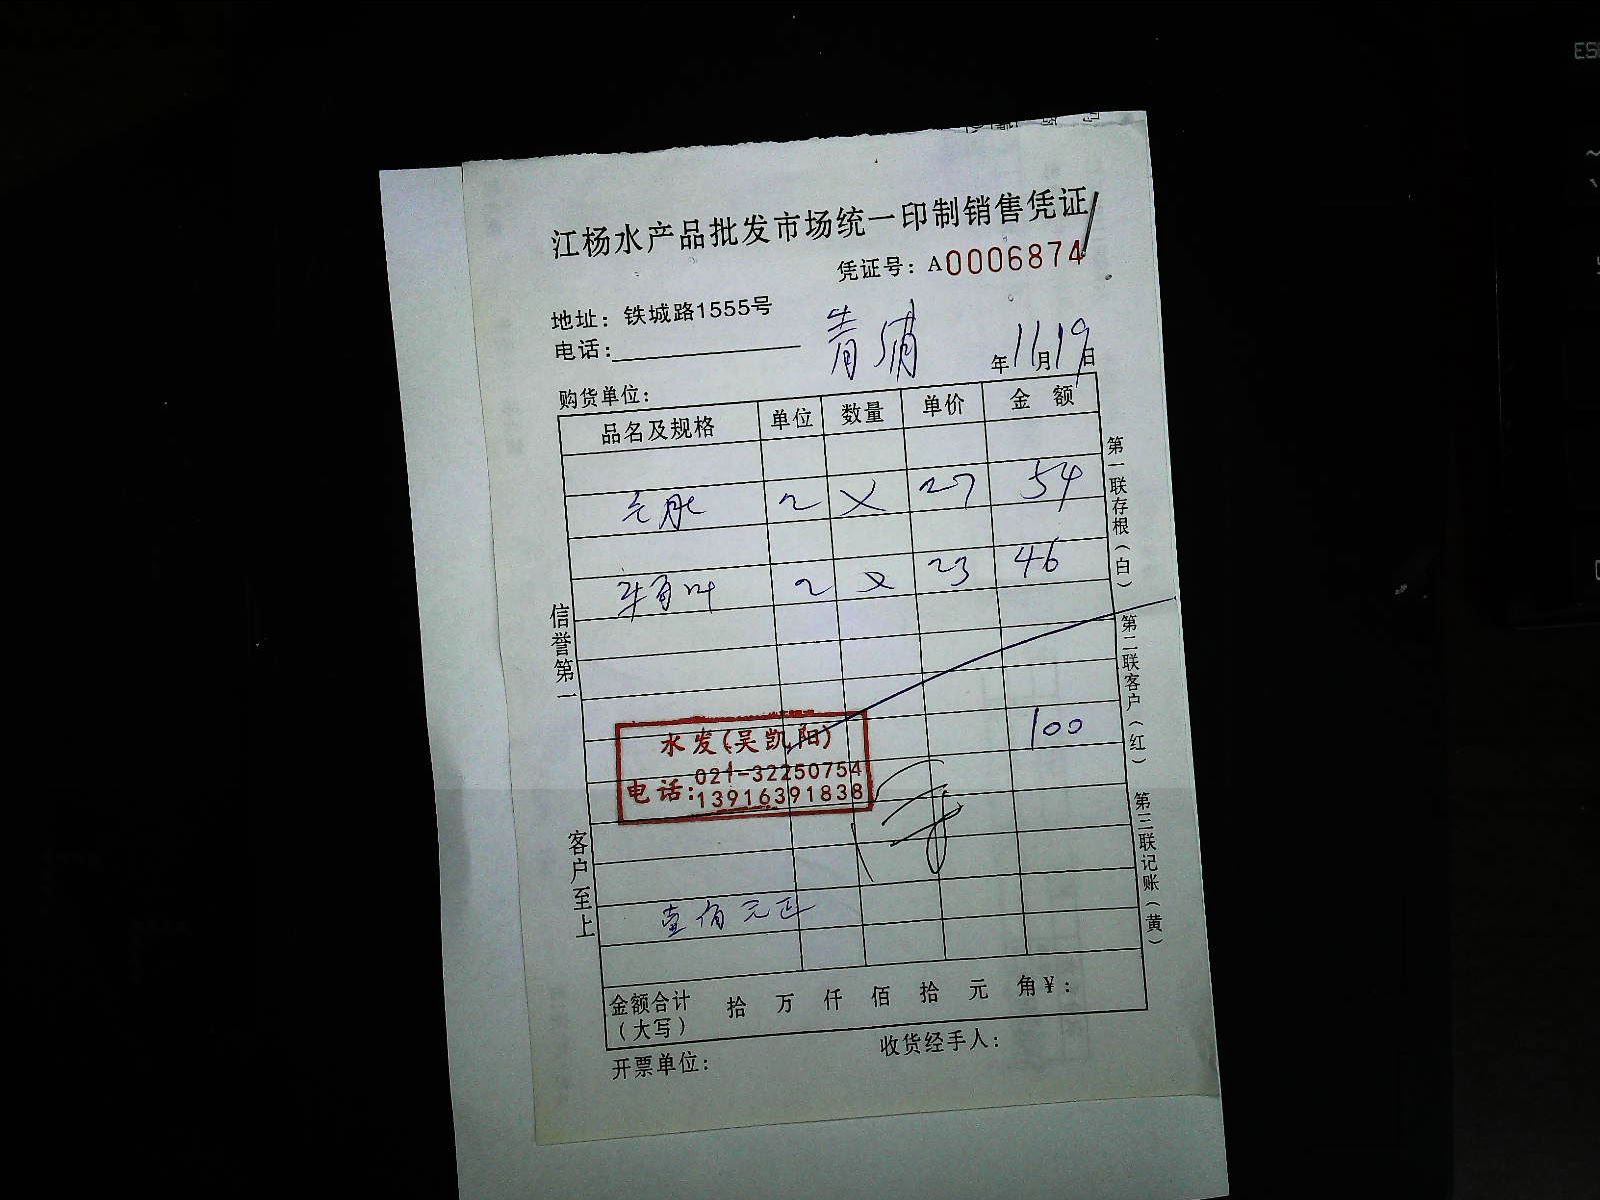 江杨水产品批发市场统一印制销售凭证
凭证号：A0006874
地址：铁城路1555号
电话：
青浦
年11月19日
购货单位：
品名及规格 单位 数量 单价 金额
2 × 27 54
牛百叶 2 × 23 46
100
水发(吴凯阳)
电话:021-32250754
13916391838
壹佰元正
金额合计（大写） 拾 万 仟 佰 拾 元 角¥：
开票单位：
收货经手人：
信誉第一
客户至上
第一联存根（白）
第二联客户（红）
第三联记账（黄）